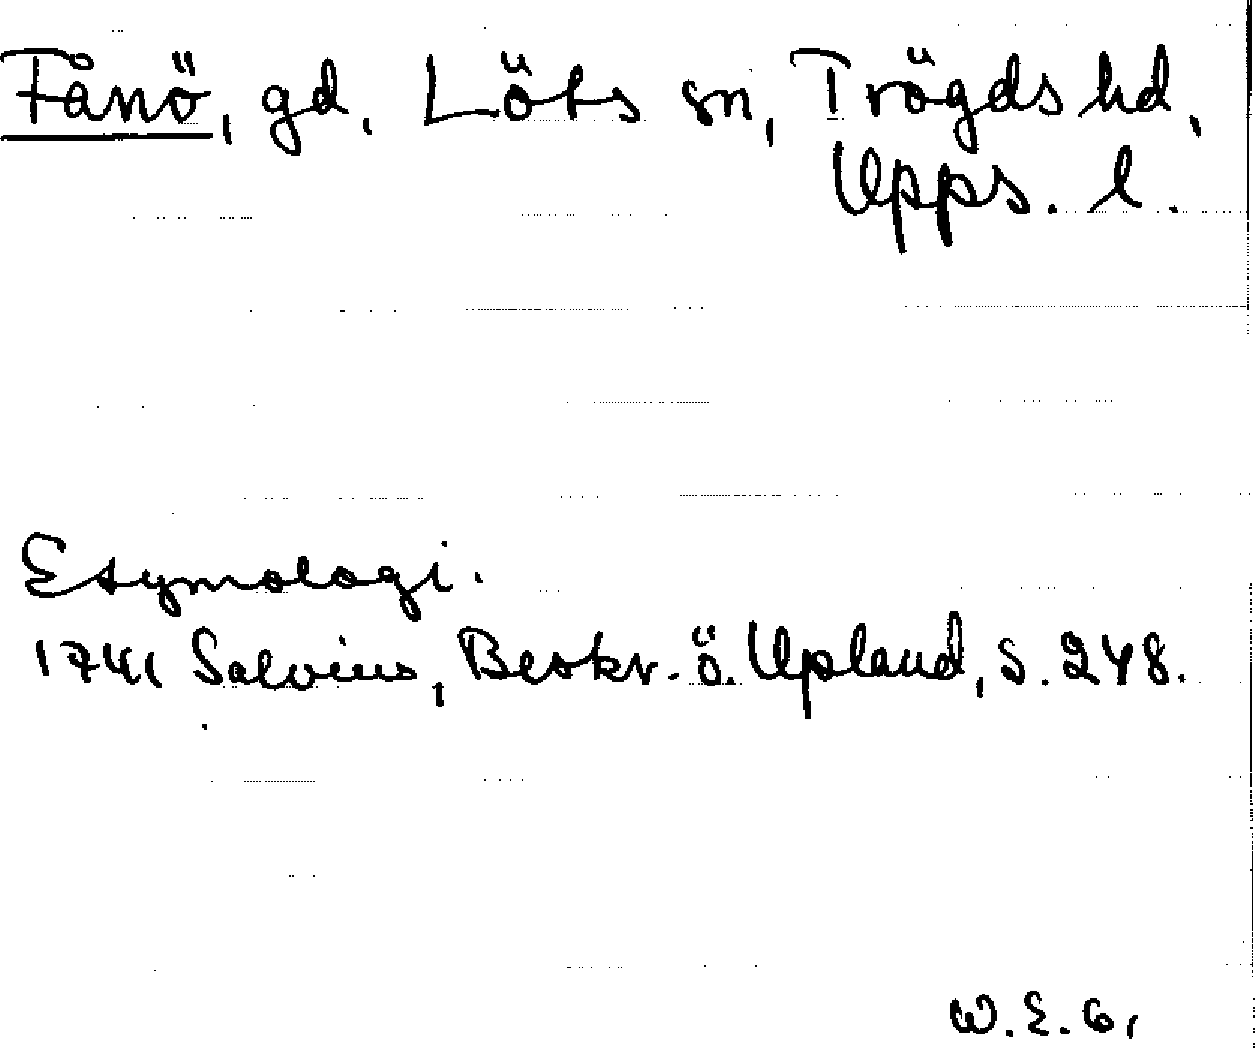 Fånö, gd, Löts sn, Trögds hd,
Upps. l.
Etymologi.
1741 Salvius, Beskr. ö. Upland, s. 248.
W.E.G.